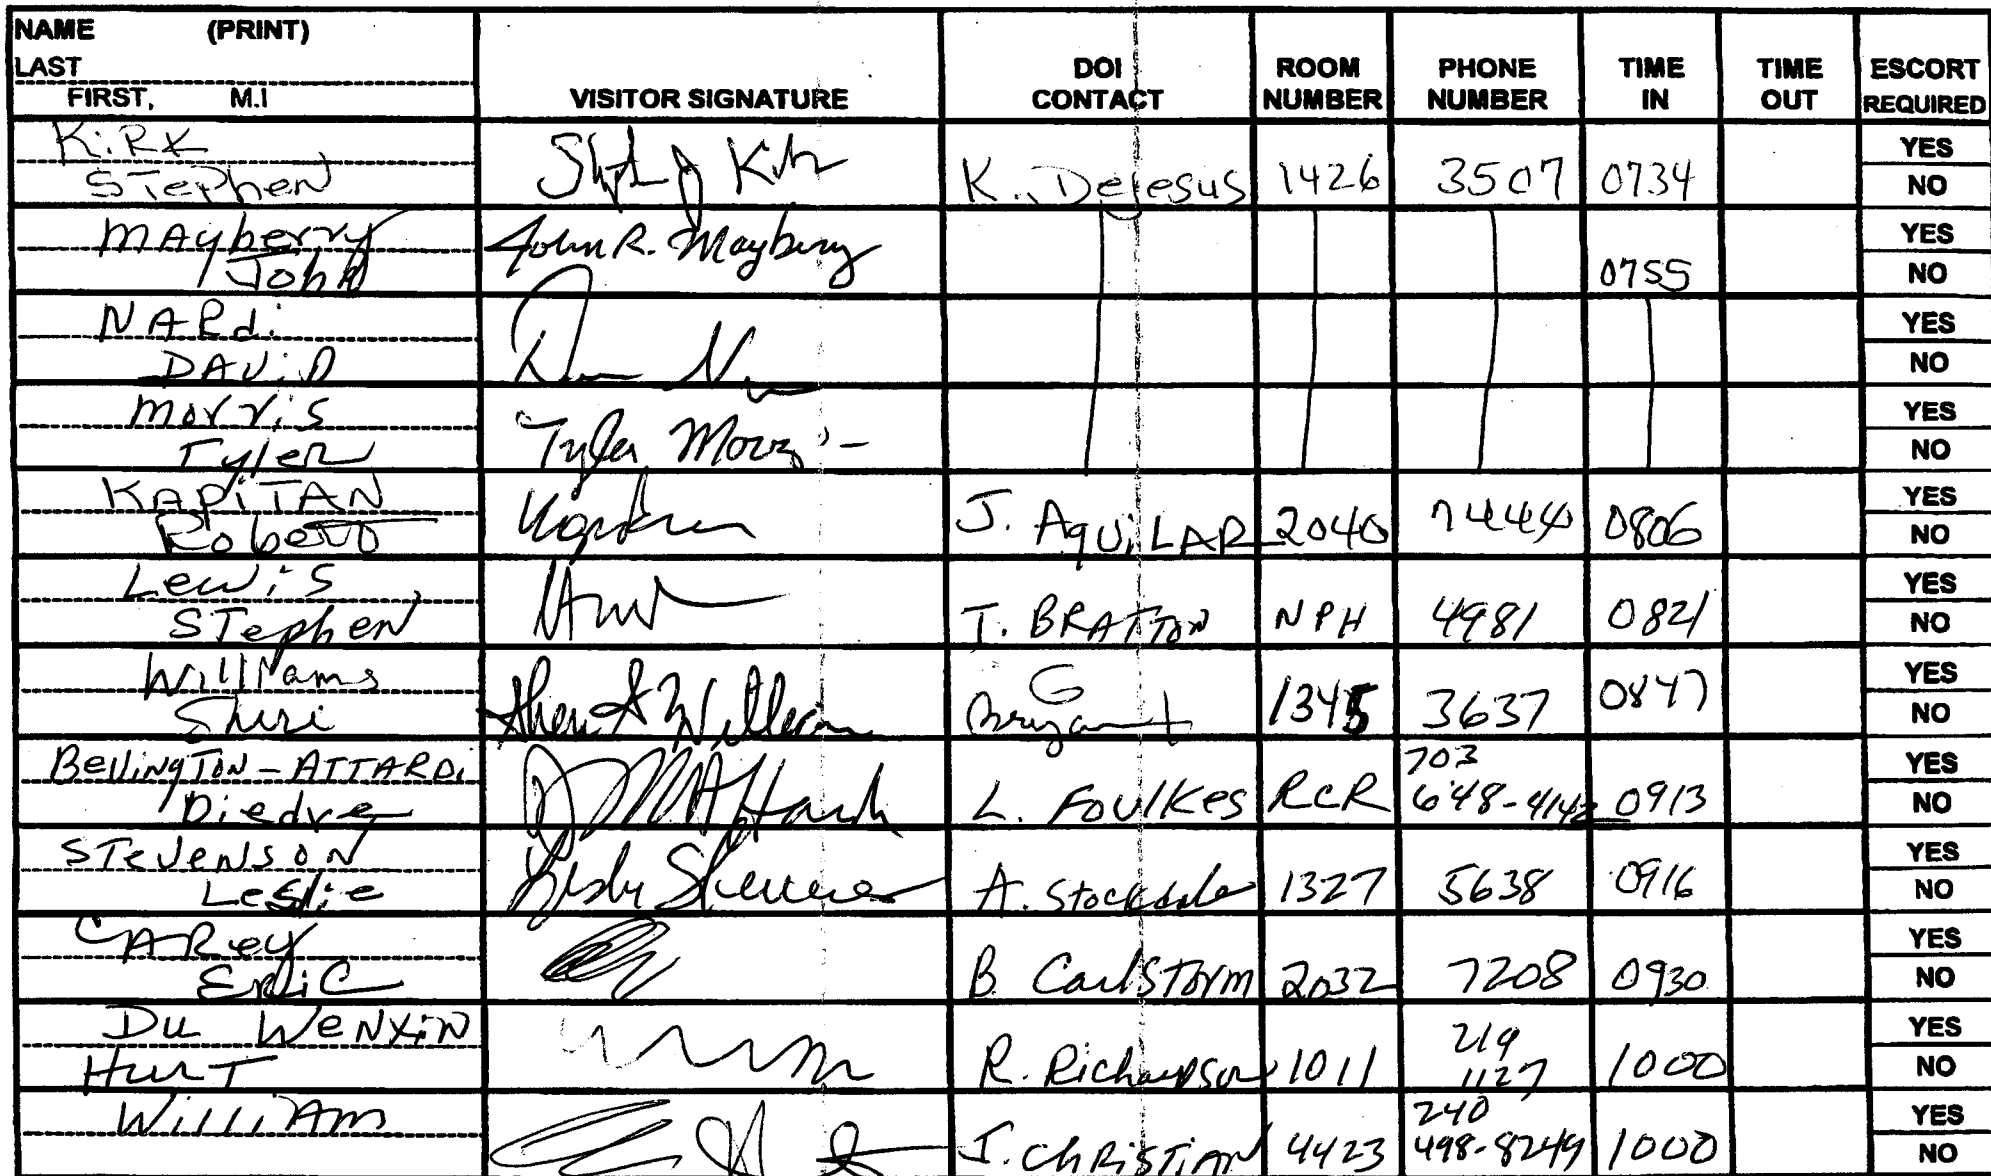 NAME (PRINT)
LAST
FIRST, M.I
VISITOR SIGNATURE
DOI CONTACT
ROOM NUMBER
PHONE NUMBER
TIME IN
TIME OUT
ESCORT REQUIRED
KiRK
STephen
K. DeJesus 1426 3507 0734
YES
NO
MAyberry
John
John R. Mayberry
0755
YES
NO
NARdi
DAViD
YES
NO
Morris
Tyler
Tyler Morris
YES
NO
KAPiTAN
Robert
J. AquiLAR 2040 74444 0806
YES
NO
Lewis
STephen
T. BRATTON NPH 4981 0821
YES
NO
Williams
Shiri
G Bryant 1345 3637 0847
YES
NO
BellingTON-ATTARDi
Diedre
L. FOULKes RCR 703 648-4142 0913
YES
NO
STeVeNSON
Leslie
A. Stockdale 1327 5638 0916
YES
NO
CARey
ERiC
B CarlSTorm 2032 7208 0930
YES
NO
Du WeNXiN
HurT
R. RichaRDSon 1011 219 1127 1000
YES
NO
WilliAm
J. ChRiSTiAN 4423 240 498-8249 1000
YES
NO